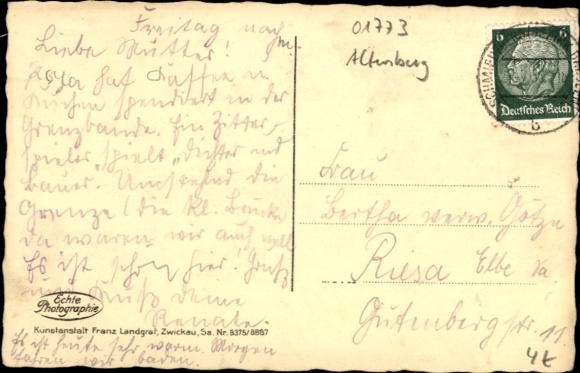 Freitag nachm.
Liebe Mutter!
hat Kaffee u
Kuchen spendiert in der
Grenzbaude. Ein Zitter-
spieler spielt „Dichter und
Bauer. Umstehend die
Grenze / die kl. Brücke
da waren wir auch
Es ist schön hier! Gruß
und Kuß Deine
Renate.
Echte
Photographie
Kunstanstalt Franz Landgraf, Zwickau, Sa. Nr. 8375/8887
Es ist heute sehr warm. Morgen
fahren wir baden.
01773
Altenberg
6 6
Deutsches Reich
b
Frau
Bertha verw. Götze
Riesa Elbe Sa
Gutenbergstr. 11